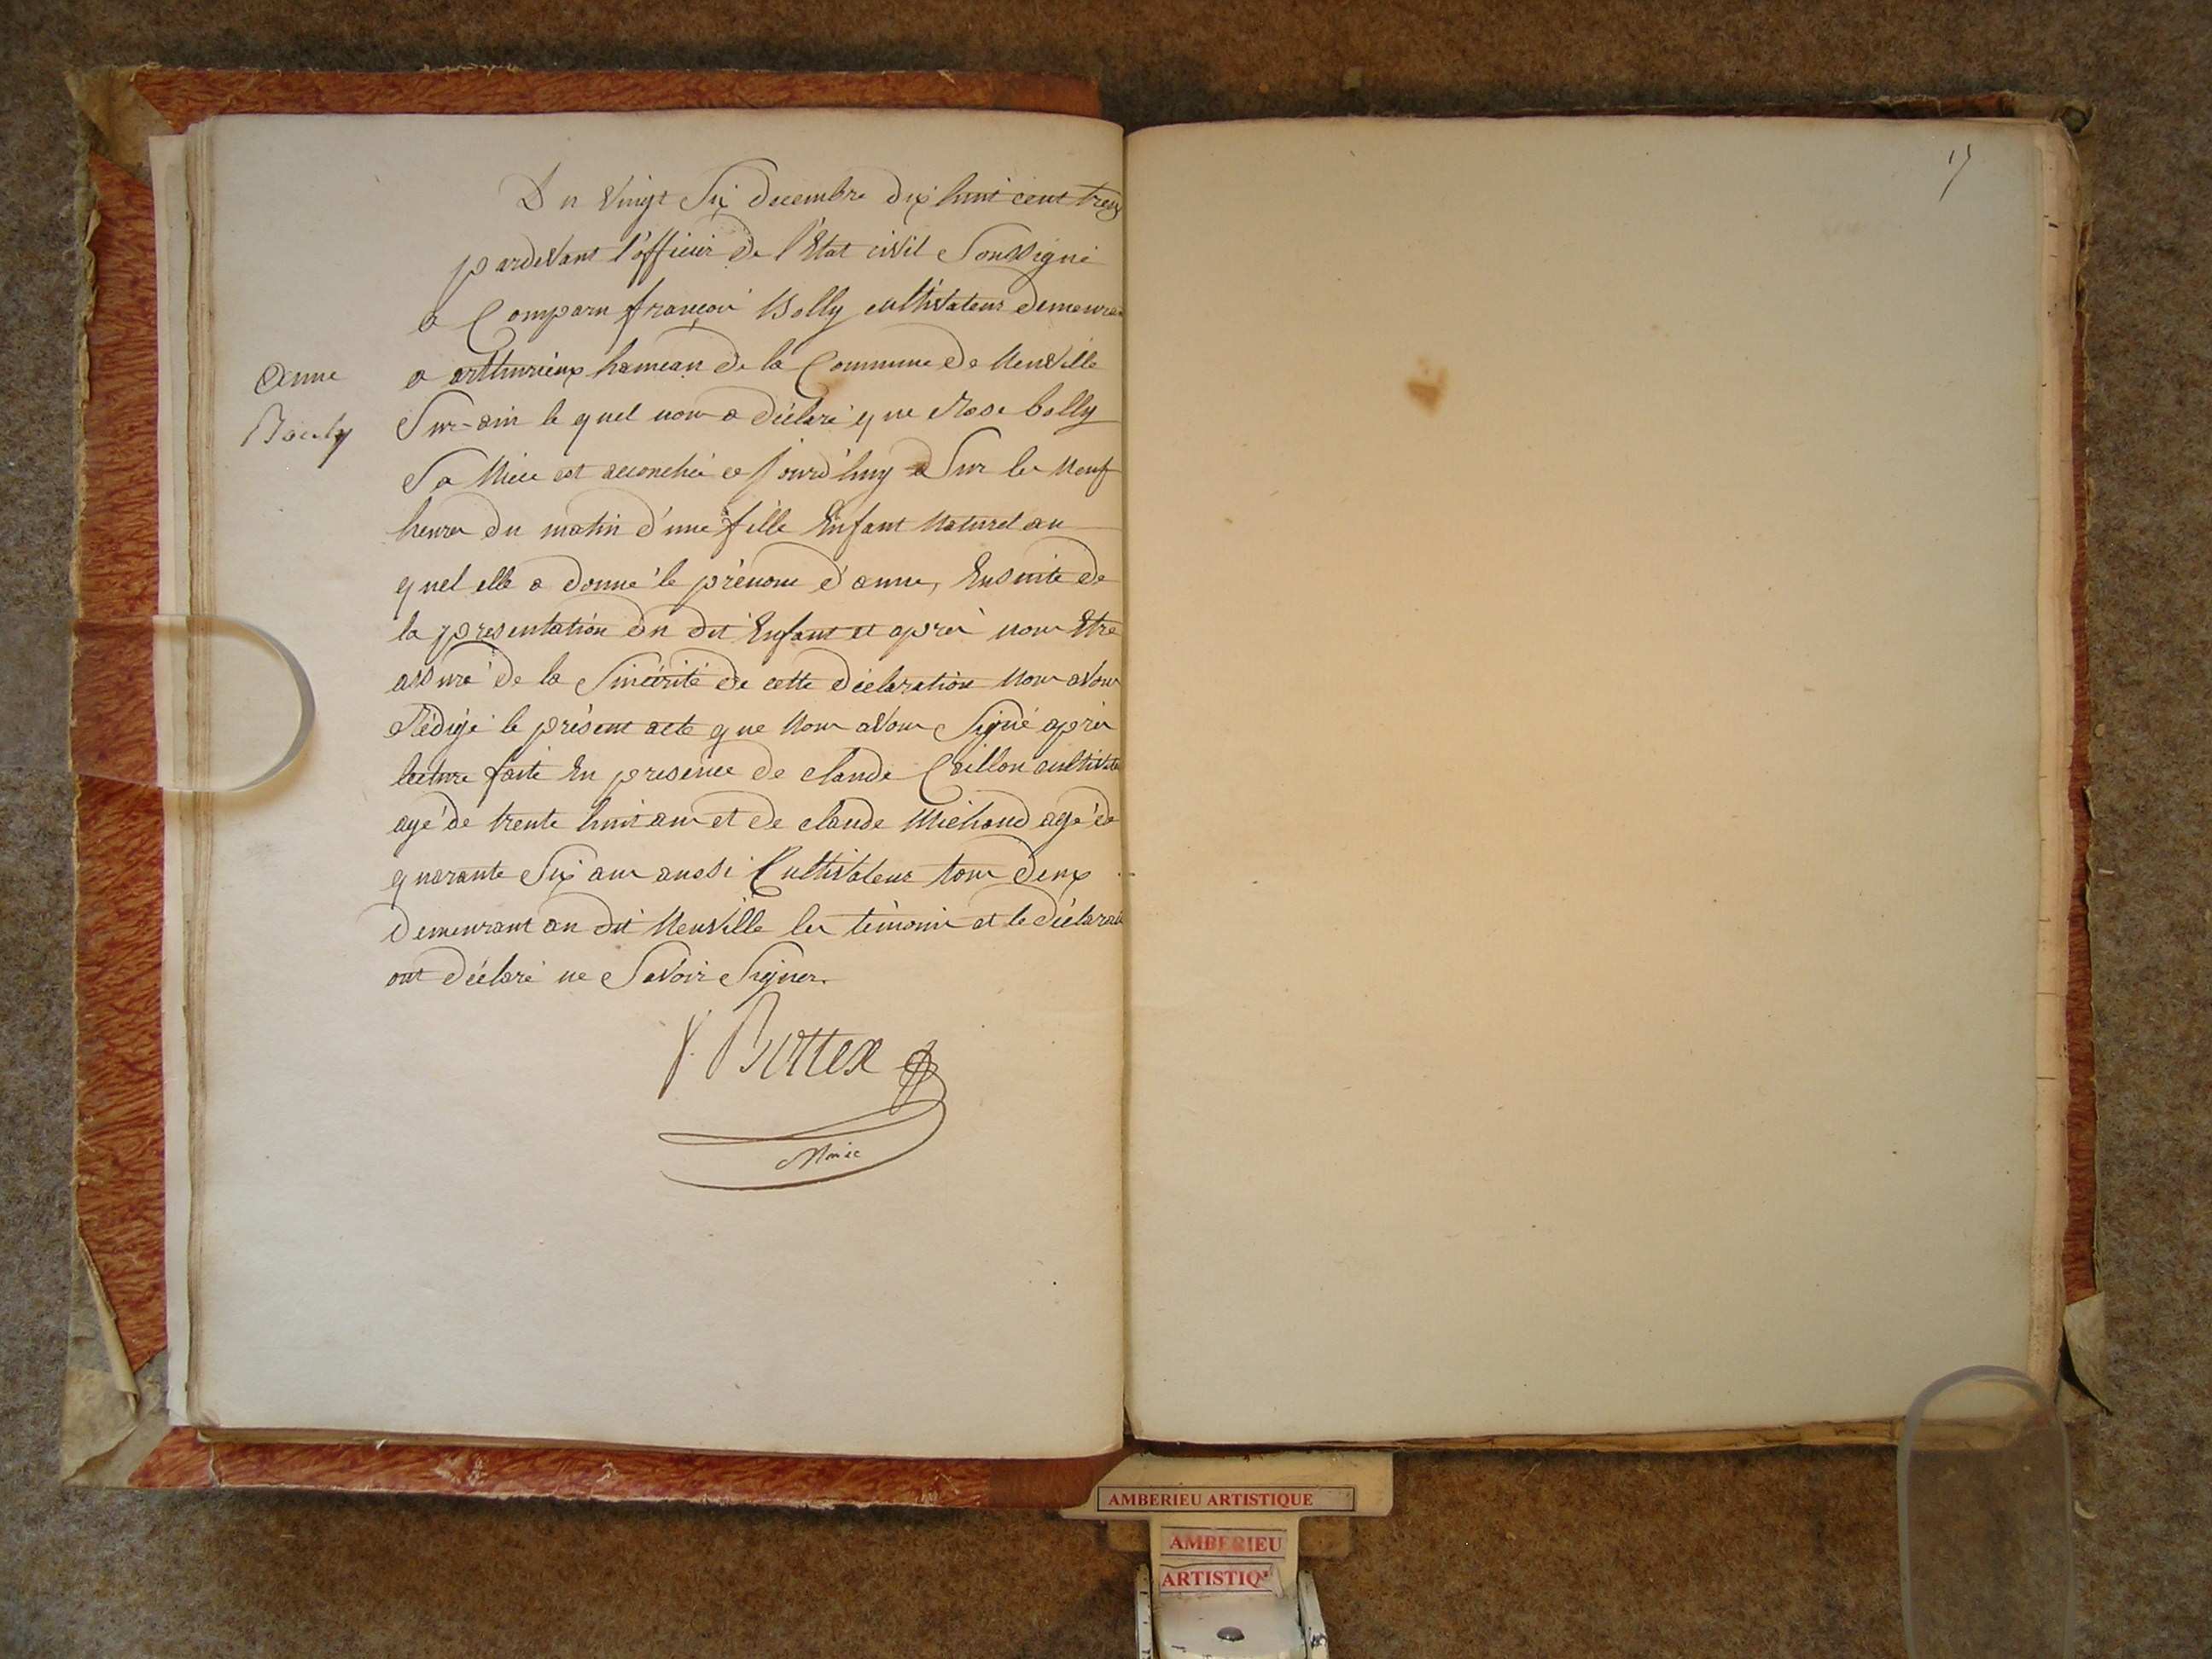 Du vingt Six decembre dix huit cent treize
pardevant l'officier de l'Etat civil Soussigné
a Comparu françois Bolly cultivateur demeurant
a arthurieux hameau de la Commune de Neuville
Sur-ain le quel nous a déclaré que Rose bolly
Sa Niece est accouchée ce Jourd'huy Sur les Neuf
heures du matin d'une fille Enfant Naturel au
quel elle a donné le prénom d'anne, Ensuite de
la presentation du dit Enfant et après nous Etre
assuré de la Sincérité de cette déclaration Nous avons
Rédigé le présent acte que Nous avons Signé après
lecture faite En presence de claude Caillon cultivateur
agé de trente huit ans et de claude Michoud agé de
quarante Six ans aussi Cultivateur tous deux
Demeurant au dit Neuville les témoins et le déclarant
ont déclaré ne Savoir Signer.
anne
Bouly
Bottex
Maire
17
AMBERIEU ARTISTIQUE
AMBERIEU
ARTISTIQ